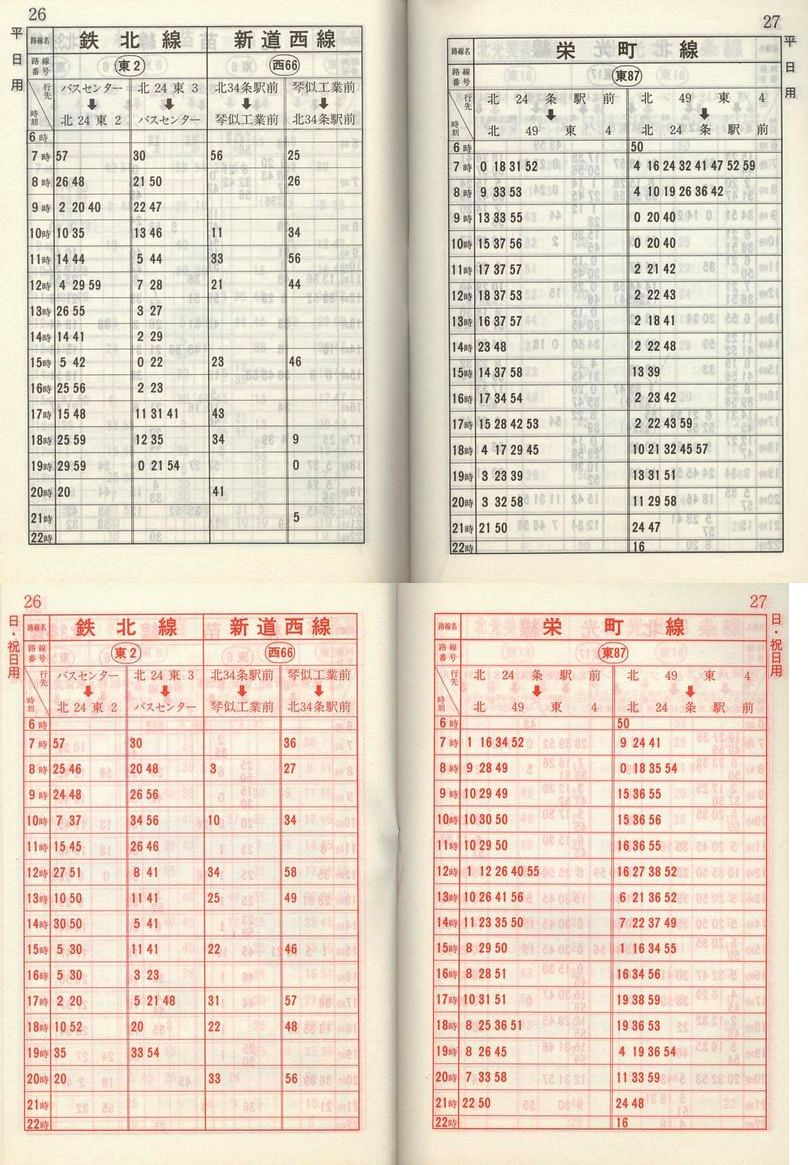 26
平日用
路線名 鉄北線 新道西線
路線番号 東2 西66
行先 時刻 バスセンター ↓ 北24東2 北24東3 ↓ バスセンター 北34条駅前 ↓ 琴似工業前 琴似工業前 ↓ 北34条駅前
6時
7時 57 30 56 25
8時 26 48 21 50 26
9時 2 20 40 22 47
10時 10 35 13 46 11 34
11時 14 44 5 44 33 56
12時 4 29 59 7 28 21 44
13時 26 55 3 27
14時 14 41 2 29
15時 5 42 0 22 23 46
16時 25 56 2 23
17時 15 48 11 31 41 43
18時 25 59 12 35 34 9
19時 29 59 0 21 54 0
20時 20 41
21時 5
22時
27
平日用
路線名 栄町線
路線番号 東87
行先 時刻 北24条駅前 ↓ 北49東4 北49東4 ↓ 北24条駅前
6時 50
7時 0 18 31 52 4 16 24 32 41 47 52 59
8時 9 33 53 4 10 19 26 36 42
9時 13 33 55 0 20 40
10時 15 37 56 0 20 40
11時 17 37 57 2 21 42
12時 18 37 53 2 22 43
13時 16 37 57 2 18 41
14時 23 48 2 22 48
15時 14 37 58 13 39
16時 17 34 54 2 23 42
17時 15 28 42 53 2 22 43 59
18時 4 17 29 45 10 21 32 45 57
19時 3 23 39 13 31 51
20時 3 32 58 11 29 58
21時 21 50 24 47
22時 16
26
日・祝日用
路線名 鉄北線 新道西線
路線番号 東2 西66
行先 時刻 バスセンター ↓ 北24東2 北24東3 ↓ バスセンター 北34条駅前 ↓ 琴似工業前 琴似工業前 ↓ 北34条駅前
6時
7時 57 30 36
8時 25 46 20 48 3 27
9時 24 48 26 56
10時 7 37 34 56 10 34
11時 15 45 26 46
12時 27 51 8 41 34 58
13時 10 50 11 41 25 49
14時 30 50 5 41
15時 5 30 11 41 22 46
16時 5 30 3 23
17時 2 20 5 21 48 31 57
18時 10 52 20 22 48
19時 35 33 54
20時 20 33 56
21時
22時
27
日・祝日用
路線名 栄町線
路線番号 東87
行先 時刻 北24条駅前 ↓ 北49東4 北49東4 ↓ 北24条駅前
6時 50
7時 1 16 34 52 9 24 41
8時 9 28 49 0 18 35 54
9時 10 29 49 15 36 55
10時 10 30 50 15 36 56
11時 10 29 50 16 36 55
12時 1 12 26 40 55 16 27 38 52
13時 10 26 41 56 6 21 36 52
14時 11 23 35 50 7 22 37 49
15時 8 29 50 1 16 34 55
16時 8 28 51 16 34 56
17時 10 31 51 19 38 59
18時 8 25 36 51 19 36 53
19時 8 26 45 4 19 36 54
20時 7 33 58 11 33 59
21時 22 50 24 48
22時 16